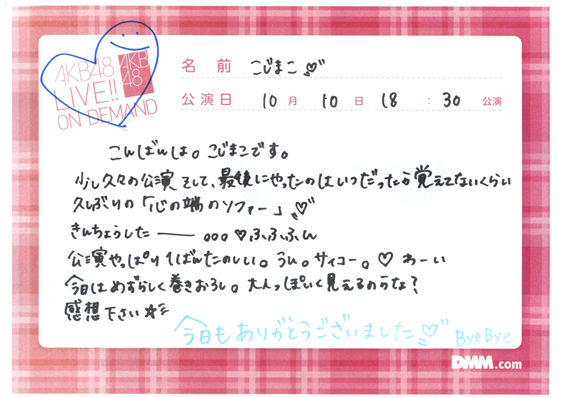 AKB48
LIVE!!
ON DEMAND
AKB
48
名 前 こじまこ
公演日 10 月 10 日 18 : 30 公演
こんばんは。こじまこです。
少し久々の公演 そして、最後にやったのはいつだったか覚えてないくらい
久しぶりの「心の端のソファー」
きんちょうした ―― 。。。♡ふふふん
公演やっぱり いちばんたのしい。うん。サイコー。♡ わーい
今日はめずらしく巻きおろし。大人っぽいく見えるのかな?
感想下さい☆彡
今日もありがとうございました
ByeBye
DMM.com